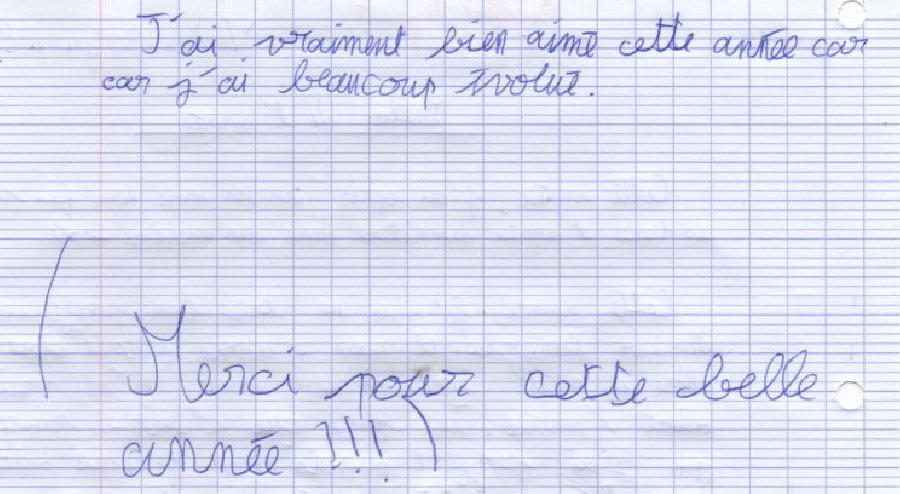 J'ai vraiment bien aimé cette année car
car j'ai beaucoup évolué.
(Merci pour cette belle
année !!!)